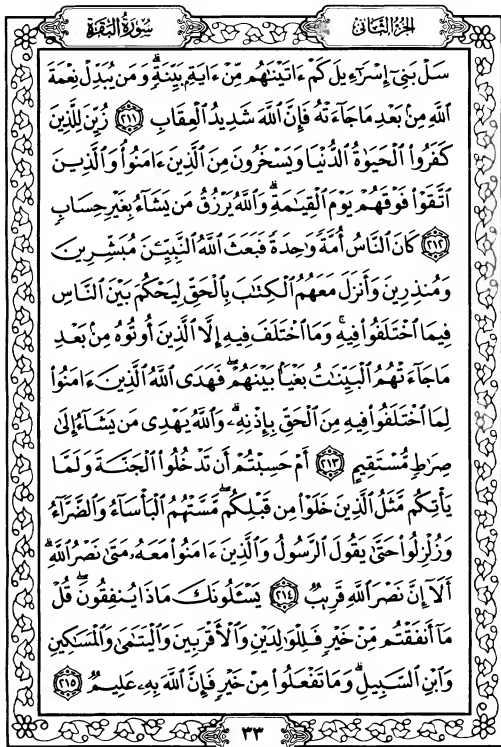 سُورَةُ البَقَرَةِ
الجُزْءُ الثَّانِي
سَلْ بَنِىٓ إِسْرَٰٓءِيلَ كَمْ ءَاتَيْنَٰهُم مِّنْ ءَايَةٍۭ بَيِّنَةٍۗ وَمَن يُبَدِّلْ نِعْمَةَ
ٱللَّهِ مِنۢ بَعْدِ مَا جَآءَتْهُ فَإِنَّ ٱللَّهَ شَدِيدُ ٱلْعِقَابِ ٢١١ زُيِّنَ لِلَّذِينَ
كَفَرُوا۟ ٱلْحَيَوٰةُ ٱلدُّنْيَا وَيَسْخَرُونَ مِنَ ٱلَّذِينَ ءَامَنُوا۟ۘ وَٱلَّذِينَ
ٱتَّقَوْا۟ فَوْقَهُمْ يَوْمَ ٱلْقِيَٰمَةِۗ وَٱللَّهُ يَرْزُقُ مَن يَشَآءُ بِغَيْرِ حِسَابٍ
٢١٢ كَانَ ٱلنَّاسُ أُمَّةً وَٰحِدَةً فَبَعَثَ ٱللَّهُ ٱلنَّبِيِّـۧنَ مُبَشِّرِينَ
وَمُنذِرِينَ وَأَنزَلَ مَعَهُمُ ٱلْكِتَٰبَ بِٱلْحَقِّ لِيَحْكُمَ بَيْنَ ٱلنَّاسِ
فِيمَا ٱخْتَلَفُوا۟ فِيهِۚ وَمَا ٱخْتَلَفَ فِيهِ إِلَّا ٱلَّذِينَ أُوتُوهُ مِنۢ بَعْدِ
مَا جَآءَتْهُمُ ٱلْبَيِّنَٰتُ بَغْيًۢا بَيْنَهُمْۖ فَهَدَى ٱللَّهُ ٱلَّذِينَ ءَامَنُوا۟
لِمَا ٱخْتَلَفُوا۟ فِيهِ مِنَ ٱلْحَقِّ بِإِذْنِهِۦۗ وَٱللَّهُ يَهْدِى مَن يَشَآءُ إِلَىٰ
صِرَٰطٍ مُّسْتَقِيمٍ ٢١٣ أَمْ حَسِبْتُمْ أَن تَدْخُلُوا۟ ٱلْجَنَّةَ وَلَمَّا
يَأْتِكُم مَّثَلُ ٱلَّذِينَ خَلَوْا۟ مِن قَبْلِكُمۖ مَّسَّتْهُمُ ٱلْبَأْسَآءُ وَٱلضَّرَّآءُ
وَزُلْزِلُوا۟ حَتَّىٰ يَقُولَ ٱلرَّسُولُ وَٱلَّذِينَ ءَامَنُوا۟ مَعَهُۥ مَتَىٰ نَصْرُ ٱللَّهِۗ
أَلَآ إِنَّ نَصْرَ ٱللَّهِ قَرِيبٌ ٢١٤ يَسْـَٔلُونَكَ مَاذَا يُنفِقُونَۖ قُلْ
مَآ أَنفَقْتُم مِّنْ خَيْرٍ فَلِلْوَٰلِدَيْنِ وَٱلْأَقْرَبِينَ وَٱلْيَتَٰمَىٰ وَٱلْمَسَٰكِينِ
وَٱبْنِ ٱلسَّبِيلِۗ وَمَا تَفْعَلُوا۟ مِنْ خَيْرٍ فَإِنَّ ٱللَّهَ بِهِۦ عَلِيمٌ ٢١٥
٣٣